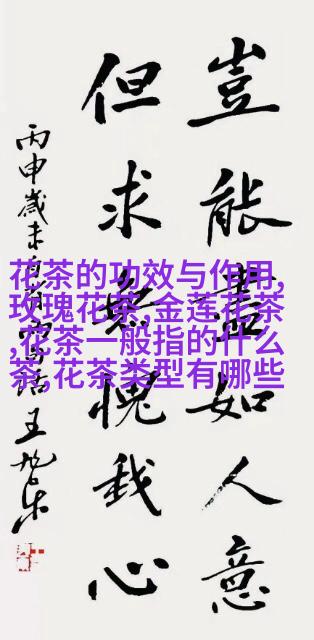 豈能盡如人意
但求無愧我心
丙申歲末 王旭东
花茶的功效与作用,
玫瑰花茶,金莲花茶
,花茶一般指的什么
茶,花茶类型有哪些